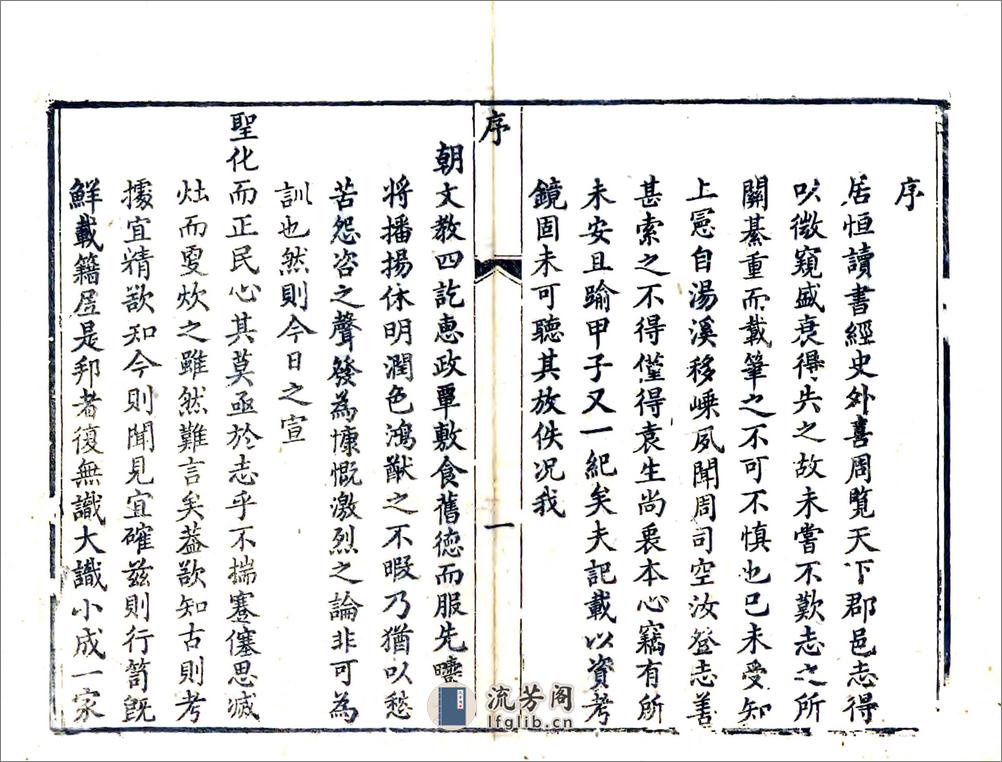 序
居恒讀書經史外喜周覽天下郡邑志得
以微窺盛衰得失之故未嘗不歎志之所
關綦重而載筆之不可不慎也已未受知
上憲自湯溪移嵊夙聞周司空汝登志善
甚索之不得僅得袁生尚衷本心竊有所
未安且踰甲子又一紀矣夫記載以資考
鏡固未可聽其放佚况我
序
一
朝文教四訖惠政覃敷食舊德而服先疇
將播揚休明潤色鴻猷之不暇乃猶以愁
苦怨咨之聲發為慷慨激烈之論非可為
訓也然則今日之宣
聖化而正民心其莫亟於志乎不揣蹇僿思滅
灶而更炊之雖然難言矣葢欲知古則考
據宜精欲知今則聞見宜確兹則行笥既
鮮載籍居是邦者復無識大識小成一家
流芳阁
lfglib.cn